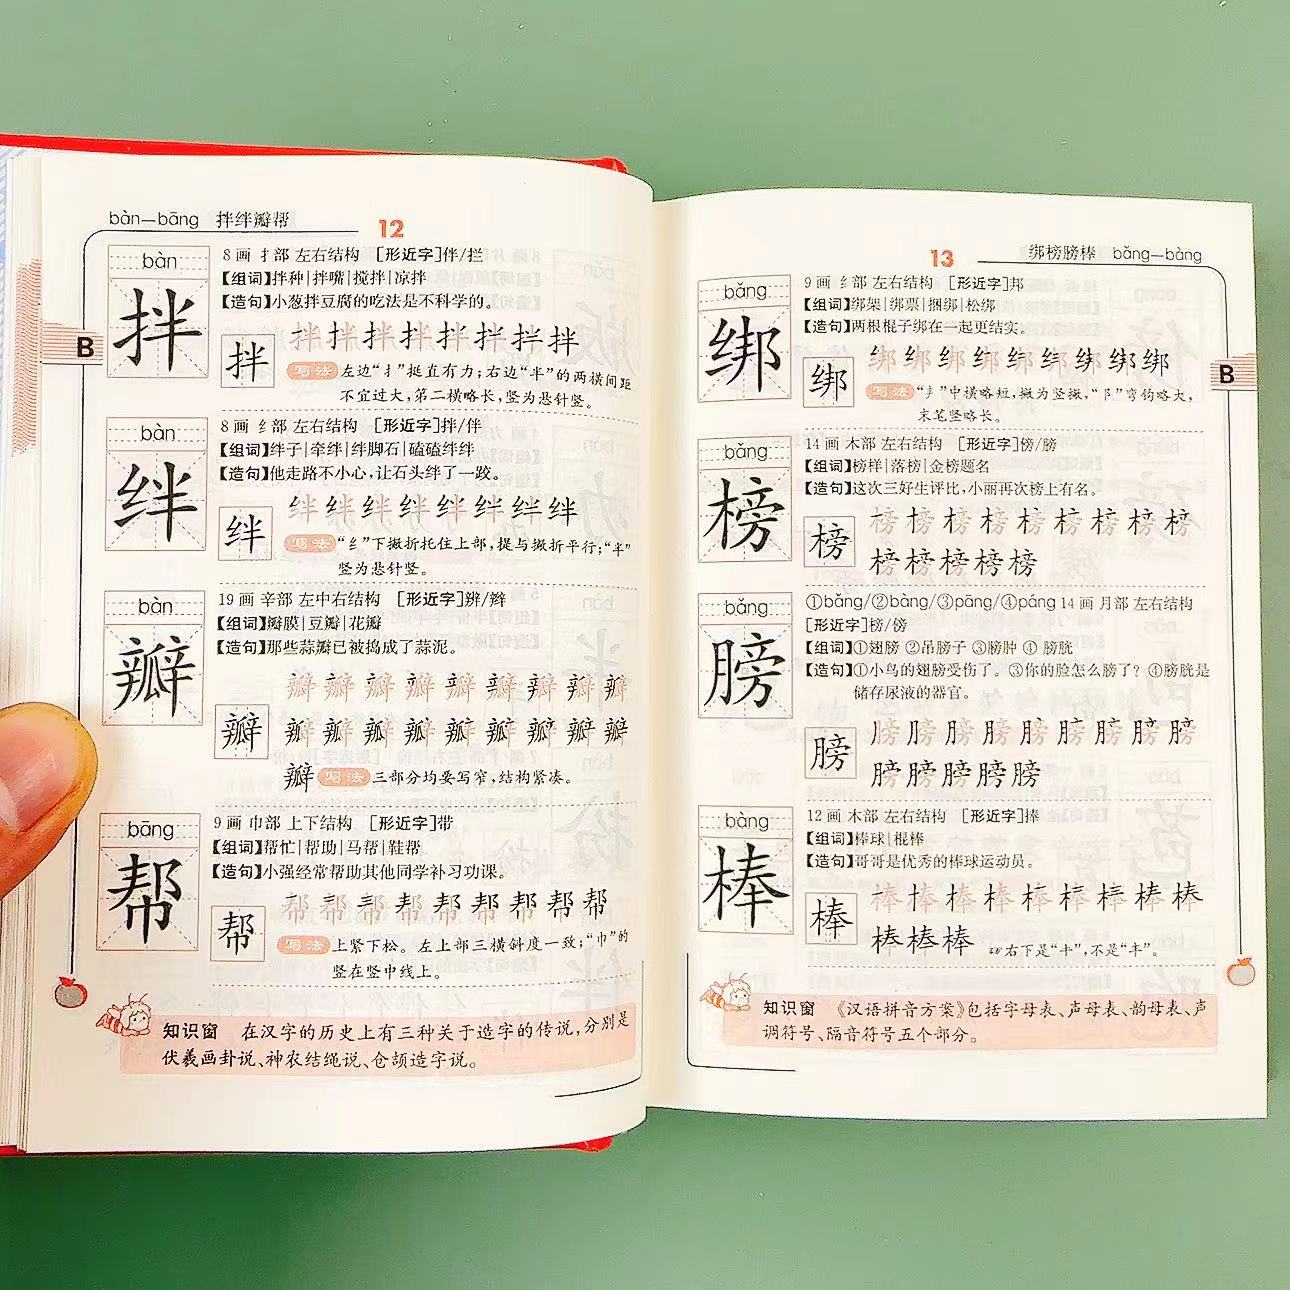 bàn—bāng 拌绊瓣帮
12
B
bàn
拌
拌
8画 扌部 左右结构 [形近字]伴/拦
【组词】拌种|拌嘴|搅拌|凉拌
【造句】小葱拌豆腐的吃法是不科学的。
拌拌拌拌拌拌拌拌
写法 左边“扌”挺直有力;右边“半”的两横间距
不宜过大,第二横略长,竖为悬针竖。
bàn
绊
绊
8画 纟部 左右结构 [形近字]拌/伴
【组词】绊子|牵绊|绊脚石|磕磕绊绊
【造句】他走路不小心,让石头绊了一跤。
绊绊绊绊绊绊绊绊
写法 “纟”下撇折托住上部,提与撇折平行;“半”
竖为悬针竖。
bàn
瓣
瓣
19画 辛部 左中右结构 [形近字]辨/辫
【组词】瓣膜|豆瓣|花瓣
【造句】那些蒜瓣已被捣成了蒜泥。
瓣瓣瓣瓣瓣瓣瓣瓣瓣
瓣瓣瓣瓣瓣瓣瓣瓣瓣
瓣 写法 三部分均要写窄,结构紧凑。
bāng
帮
帮
9画 巾部 上下结构 [形近字]带
【组词】帮忙|帮助|马帮|鞋帮
【造句】小强经常帮助其他同学补习功课。
帮帮帮帮帮帮帮帮帮
写法 上紧下松。左上部三横斜度一致;“巾”的
竖在竖中线上。
知识窗 在汉字的历史上有三种关于造字的传说,分别是
伏羲画卦说、神农结绳说、仓颉造字说。
13
绑榜膀棒 bǎng—bàng
B
bǎng
绑
绑
9画 纟部 左右结构 [形近字]邦
【组词】绑架|绑票|捆绑|松绑
【造句】两根棍子绑在一起更结实。
绑绑绑绑绑绑绑绑绑
写法 “丰”中横略短,撇为竖撇,“阝”弯钩略大,
末笔竖略长。
bǎng
榜
榜
14画 木部 左右结构 [形近字]傍/膀
【组词】榜样|落榜|金榜题名
【造句】这次三好生评比,小丽再次榜上有名。
榜榜榜榜榜榜榜榜榜
榜榜榜榜榜
bǎng
膀
膀
①bǎng/②bàng/③pāng/④páng 14画 月部 左右结构
[形近字]榜/傍
【组词】①翅膀 ②吊膀子 ③膀肿 ④膀胱
【造句】①小鸟的翅膀受伤了。③你的脸怎么膀了?④膀胱是
储存尿液的器官。
膀膀膀膀膀膀膀膀膀
膀膀膀膀膀
bàng
棒
棒
12画 木部 左右结构 [形近字]捧
【组词】棒球|棍棒
【造句】哥哥是优秀的棒球运动员。
棒棒棒棒棒棒棒棒棒
棒棒棒 右下是“丰”,不是“丰”。
知识窗 《汉语拼音方案》包括字母表、声母表、韵母表、声
调符号、隔音符号五个部分。